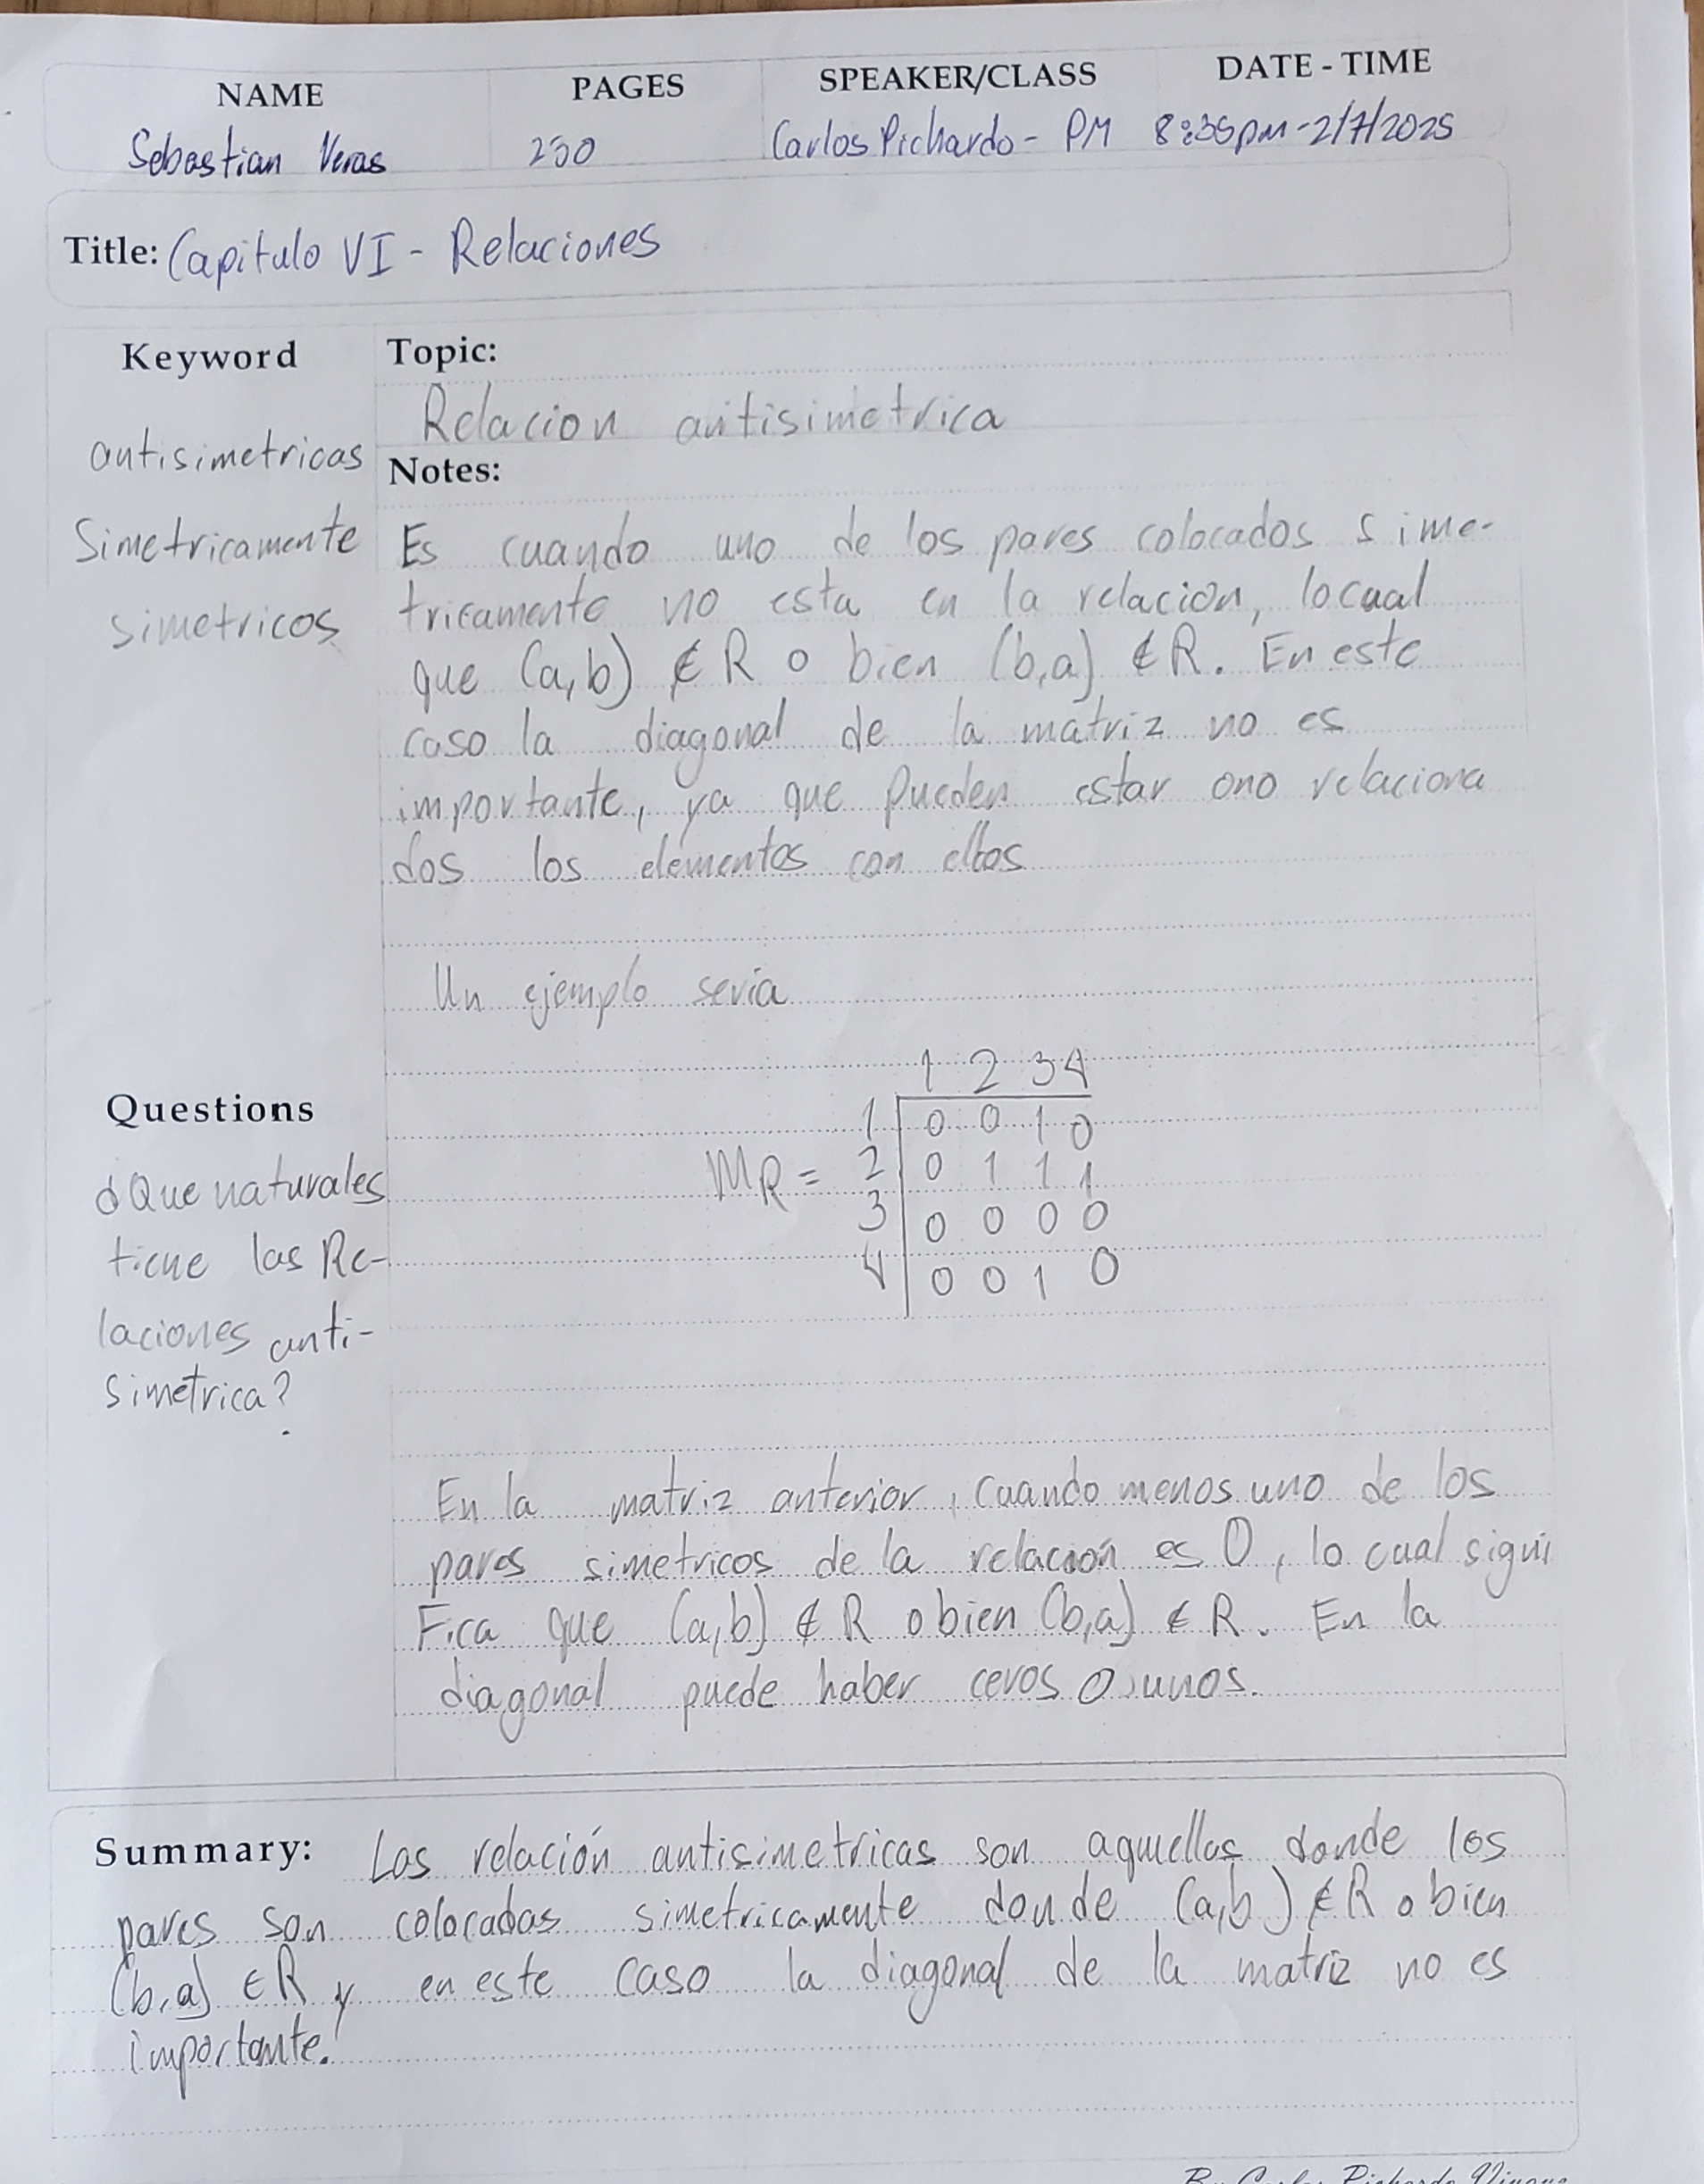 NAME PAGES SPEAKER/CLASS DATE - TIME
Sebastian Veras 230 Carlos Pichardo - PM 8:35pm - 2/7/2025
Title: Capitulo VI - Relaciones
Keyword
antisimetricas
Simetricamente
simetricos
Topic:
Relacion antisimetrica
Notes:
Es cuando uno de los pares colocados sime-
tricamente no esta en la relacion, locual
que (a,b) ∉ R o bien (b,a) ∉ R. En este
caso la diagonal de la matriz no es
importante, ya que pueden estar ono relaciona
dos los elementos con ellos
Un ejemplo seria
1 2 3 4
1 0 0 1 0
MR = 2 0 1 1 1
3 0 0 0 0
4 0 0 1 0
Questions
¿Que naturales
tiene las Re-
laciones anti-
simetrica?
En la matriz anterior, cuando menos uno de los
pares simetricos de la relacion es 0, lo cual signi
Fica que (a,b) ∉ R o bien (b,a) ∉ R. En la
diagonal puede haber ceros o unos.
Summary: Las relación antisimetricas son aquellas donde los
pares son colocadas simetricamente donde (a,b) ∉ R o bien
(b,a) ∈ R y en este caso la diagonal de la matriz no es
importante.
By Carlos Pichardo